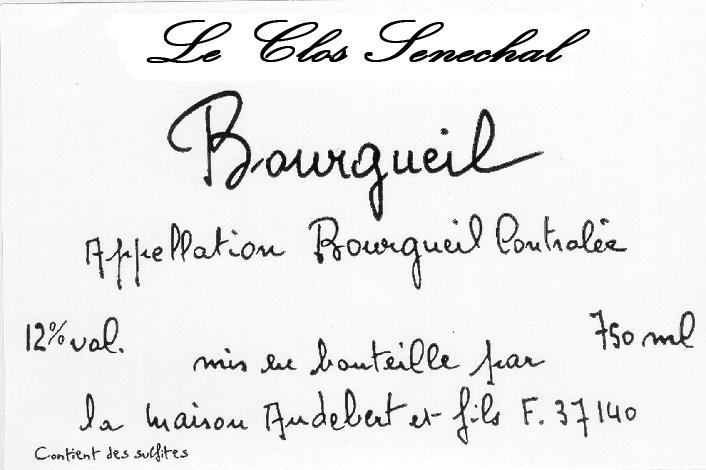 Le Clos Senechal
Bourgueil
Appellation Bourgueil Contrôlée
12% vol.
750 ml
mis en bouteille par
la maison Audebert et fils F. 37140
Contient des sulfites